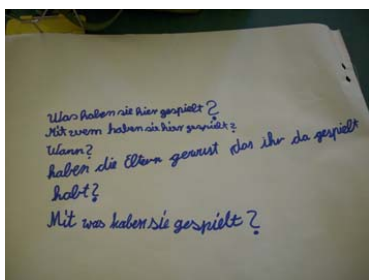 Was haben sie hier gespielt?
Mit wem haben sie hier gespielt?
Wann?
haben die Eltern gewust das ihr da gespielt
habt?
Mit was haben sie gespielt?